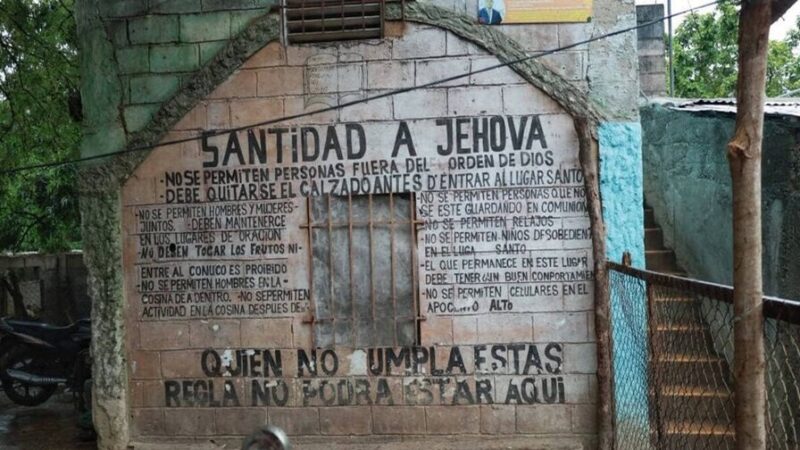 SANTIDAD A JEHOVA
-NO SE PERMITEN PERSONAS FUERA DEL ORDEN DE DIOS
-DEBE QUITARSE EL CALZADO ANTES D'ENTRAR AL LUGAR SANTO
-NO SE PERMITEN HOMBRES Y MUJERES
JUNTOS. DEBEN MANTENERCE
EN LOS LUGARES DE ORACION
-NO DEBEN TOCAR LOS FRUTOS NI
ENTRE AL CONUCO ES PROIBIDO
-NO SE PERMITEN HOMBRES EN LA
COSINA DEADENTRO. -NO SEPERMITEN
ACTIVIDAD EN LA COSINA DESPUES DE
-NO SE PERMITEN PERSONAS QUE NO
SE ESTE GUARDANDO EN COMUNION
-NO SE PERMITEN RELAJOS
-NO SE PERMITEN NIÑOS DESOBEDIEN
EN EL LUGA SANTO
-EL QUE PERMANECE EN ESTE LUGAR
DEBE TENER UN BUEN COMPORTAMIEN
-NO SE PERMITEN CELULARES EN EL
APOCENTO ALTO
QUIEN NO UMPLA ESTAS
REGLA NO PODRA ESTAR AQUI